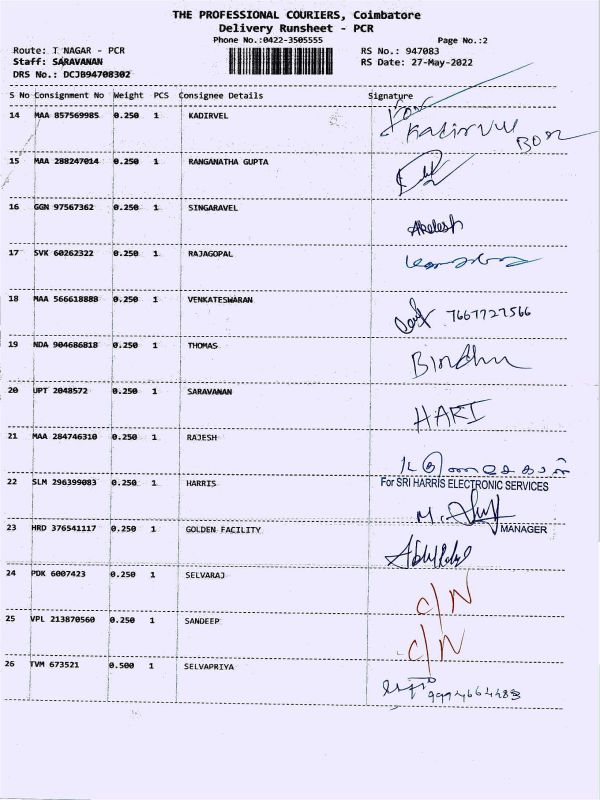 THE PROFESSIONAL COURIERS, Coimbatore
Delivery Runsheet - PCR
Phone No.:0422-3505555 Page No.:2
Route: T NAGAR - PCR RS No.: 947083
Staff: SARAVANAN RS Date: 27-May-2022
DRS No.: DCJB94708302
S No Consignment No Weight PCS Consignee Details Signature
14 MAA 857569985 0.250 1 KADIRVEL Kadirvel
15 MAA 288247014 0.250 1 RANGANATHA GUPTA
16 GGN 97567362 0.250 1 SINGARAVEL
17 SVK 60262322 0.250 1 RAJAGOPAL
18 MAA 566618888 0.250 1 VENKATESWARAN 7667727566
19 NDA 904686818 0.250 1 THOMAS Bindhu
20 UPT 2048572 0.250 1 SARAVANAN HARI
21 MAA 284746310 0.250 1 RAJESH
22 SLM 296399083 0.250 1 HARRIS For SRI HARRIS ELECTRONIC SERVICES
MANAGER
23 HRD 376541117 0.250 1 GOLDEN FACILITY
24 PDK 6007423 0.250 1 SELVARAJ C/N
25 VPL 213870560 0.250 1 SANDEEP C/N
26 TVM 673521 0.500 1 SELVAPRIYA